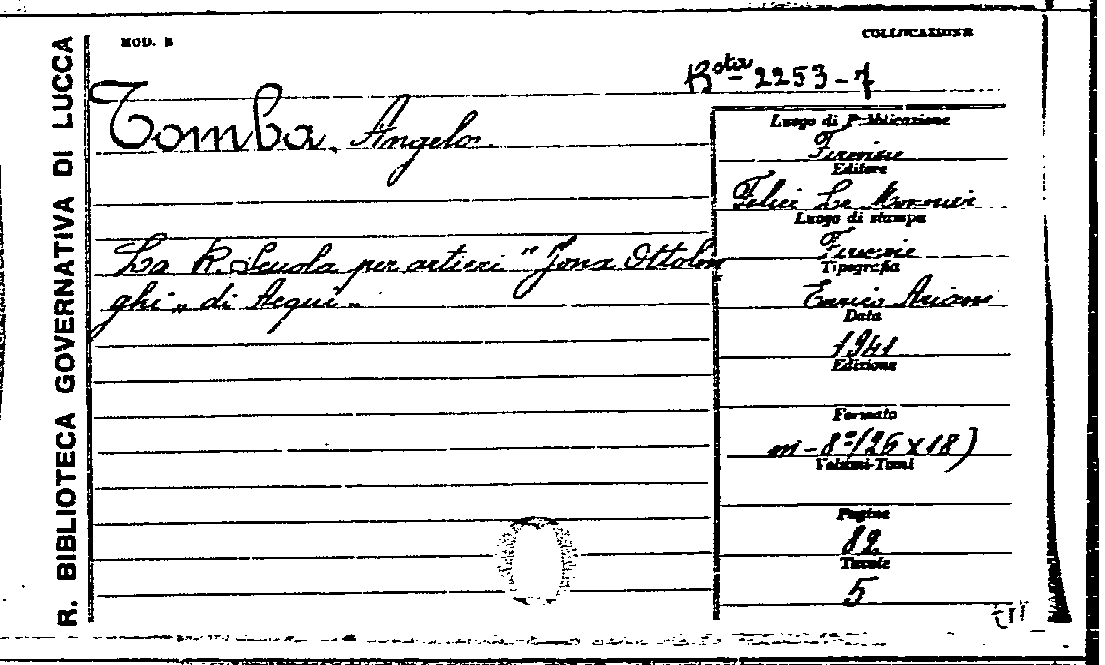 R. BIBLIOTECA GOVERNATIVA DI LUCCA
MOD. B
COLLOCAZIONE
Bsta 2253-7
Tomba, Angelo.
La R. Scuola per artieri "Jona Ottolen
ghi" di Acqui.
Luogo di Pubblicazione
Firenze
Editore
Felice Le Monnier
Luogo di stampa
Firenze
Tipografia
Enrico Ariani
Data
1941
Edizione
Formato
m-8°(26x18)
Volumi-Tomi
Pagine
82
Tavole
5